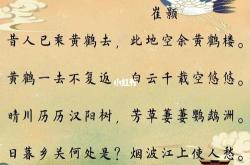 崔颢
昔人已乘黄鹤去，此地空余黄鹤楼。
黄鹤一去不复返，白云千载空悠悠。
小红书
晴川历历汉阳树，芳草萋萋鹦鹉洲。
日暮乡关何处是？烟波江上使人愁。